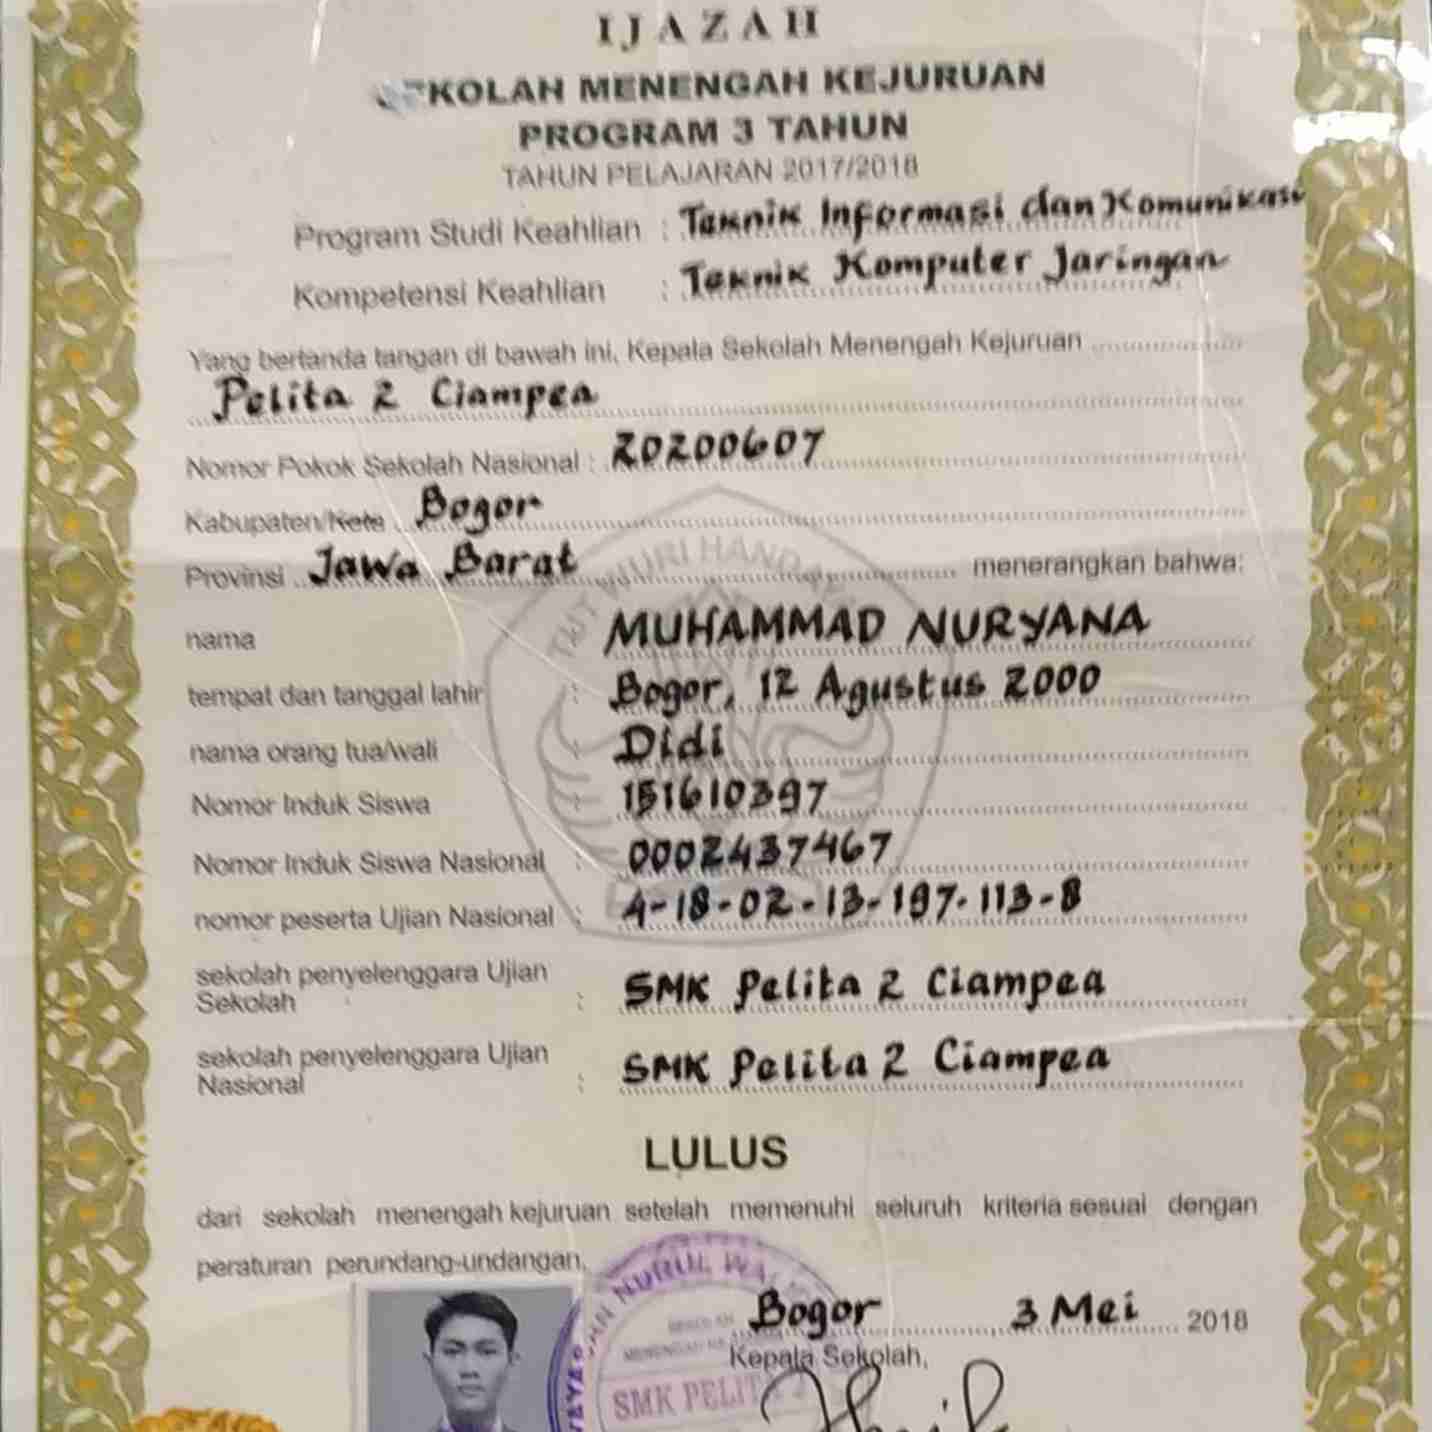 IJAZAH
SEKOLAH MENENGAH KEJURUAN
PROGRAM 3 TAHUN
TAHUN PELAJARAN 2017/2018
Program Studi Keahlian : Teknik Informasi dan Komunikasi
Kompetensi Keahlian : Teknik Komputer Jaringan
Yang bertanda tangan di bawah ini, Kepala Sekolah Menengah Kejuruan
Pelita 2 Ciampea
Nomor Pokok Sekolah Nasional : 20200607
Kabupaten/Kota Bogor
Provinsi Jawa Barat menerangkan bahwa:
nama MUHAMMAD NURYANA
tempat dan tanggal lahir : Bogor, 12 Agustus 2000
nama orang tua/wali : Didi
Nomor Induk Siswa : 151610397
Nomor Induk Siswa Nasional : 0002437467
nomor peserta Ujian Nasional : 4-18-02-13-197-113-8
sekolah penyelenggara Ujian
Sekolah : SMK Pelita 2 Ciampea
sekolah penyelenggara Ujian
Nasional : SMK Pelita 2 Ciampea
LULUS
dari sekolah menengah kejuruan setelah memenuhi seluruh kriteria sesuai dengan
peraturan perundang-undangan.
Bogor, 3 Mei 2018
Kepala Sekolah,
NURUL
SMK PELITA
TUT WURI